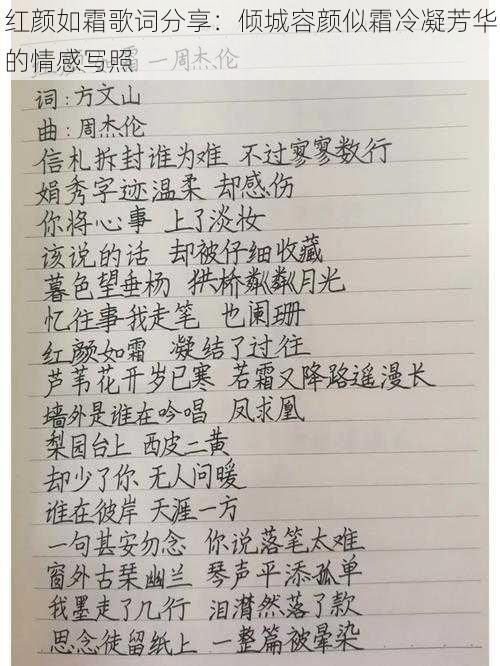 红颜如霜歌词分享：倾城容颜似霜冷凝芳华
的情感写照
一周杰伦
词：方文山
曲：周杰伦
信札拆封谁为难 不过寥寥数行
娟秀字迹温柔 却感伤
你将心事 上了淡妆
该说的话 却被仔细收藏
暮色望垂杨 拱桥粼粼月光
忆往事我走笔 也阑珊
红颜如霜 凝结了过往
芦苇花开岁已寒 若霜又降路遥漫长
墙外是谁在吟唱 凤求凰
梨园台上 西皮二黄
却少了你 无人问暖
谁在彼岸 天涯一方
一句甚安勿念 你说落笔太难
窗外古琹幽兰 琴声平添孤单
我墨走了几行 泪潸然落了款
思念徒留纸上 一整篇被晕染